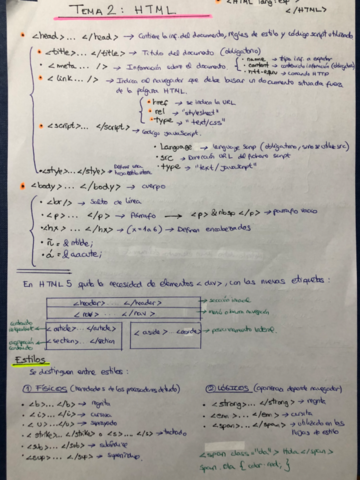 TEMA 2: HTML
</HTML>
• <head>... </head> → Contiene la inf. del documento, reglas de estilo y código script utilizado
• <title>... </title> → Título del documento (obligatorio)
• <meta... /> → Información sobre el documento
• name →
• content →
• http-equiv → comando HTTP
• <link... /> → Indica al navegador que debe buscar un documento situado fuera
de la página HTML.
• href → se indica la URL
• rel → "stylesheet"
• type → "text/css"
• <script>... </script> → Código JavaScript.
• language → language Script
• src → Dirección URL del fichero script
• type → "text/javascript"
• <style>... </style> →
• <body>... </body> → cuerpo
• <br/> → Salto de línea
• <p>... </p> → Párrafo → <p>&nbsp</p> → párrafo vacío
• <hx>... </hx> → (x=1 a 6) → Definen encabezados
• ñ = &ntilde;
• á = &aacute;
En HTML 5 quita la necesidad de elementos <div>, con las nuevas etiquetas:
<header> </header>
<nav> </nav>
<article> </article>
<section> </section
<aside> </aside>
Estilos
Se distinguen entre estilos:
① FÍSICOS
② LÓGICOS (apariencia depende navegador)
• <b>... </b> → negrita
• <strong>... </strong> → negrita
• <i>... </i> → cursiva
• <em>... </em> → cursiva
• <u>... </u> → subrayado
• <span>... </span> → utilizado en las
hojas de estilo
• <strike>... </strike> o <s>... </s> → tachado
• <sub>... </sub> → subíndice
• <sup>... </sup> → superíndice
<span class="ola"> Hola </span>
span.ola { color: red; }